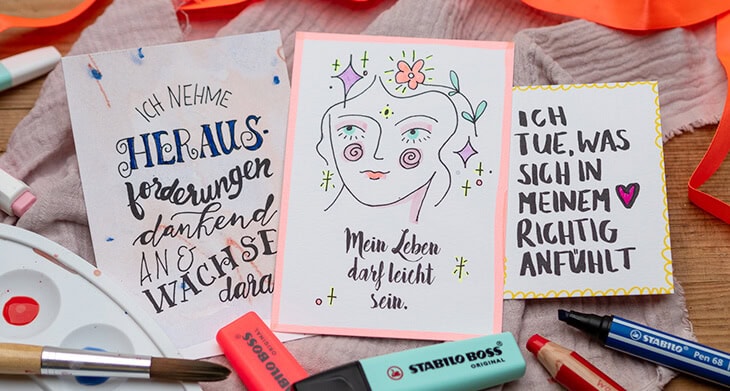 ICH NEHME
HERAUS-
forderungen
dankend
AN &
WACHSE
dara
Mein Leben
darf leicht
sein.
ICH
TUE, WAS
SICH IN
MEINEM
RICHTIG
ANFÜHLT
STABILO BOSS
ORIGINAL
STABILO BOSS
ORIGINAL
STABILO Pen 68